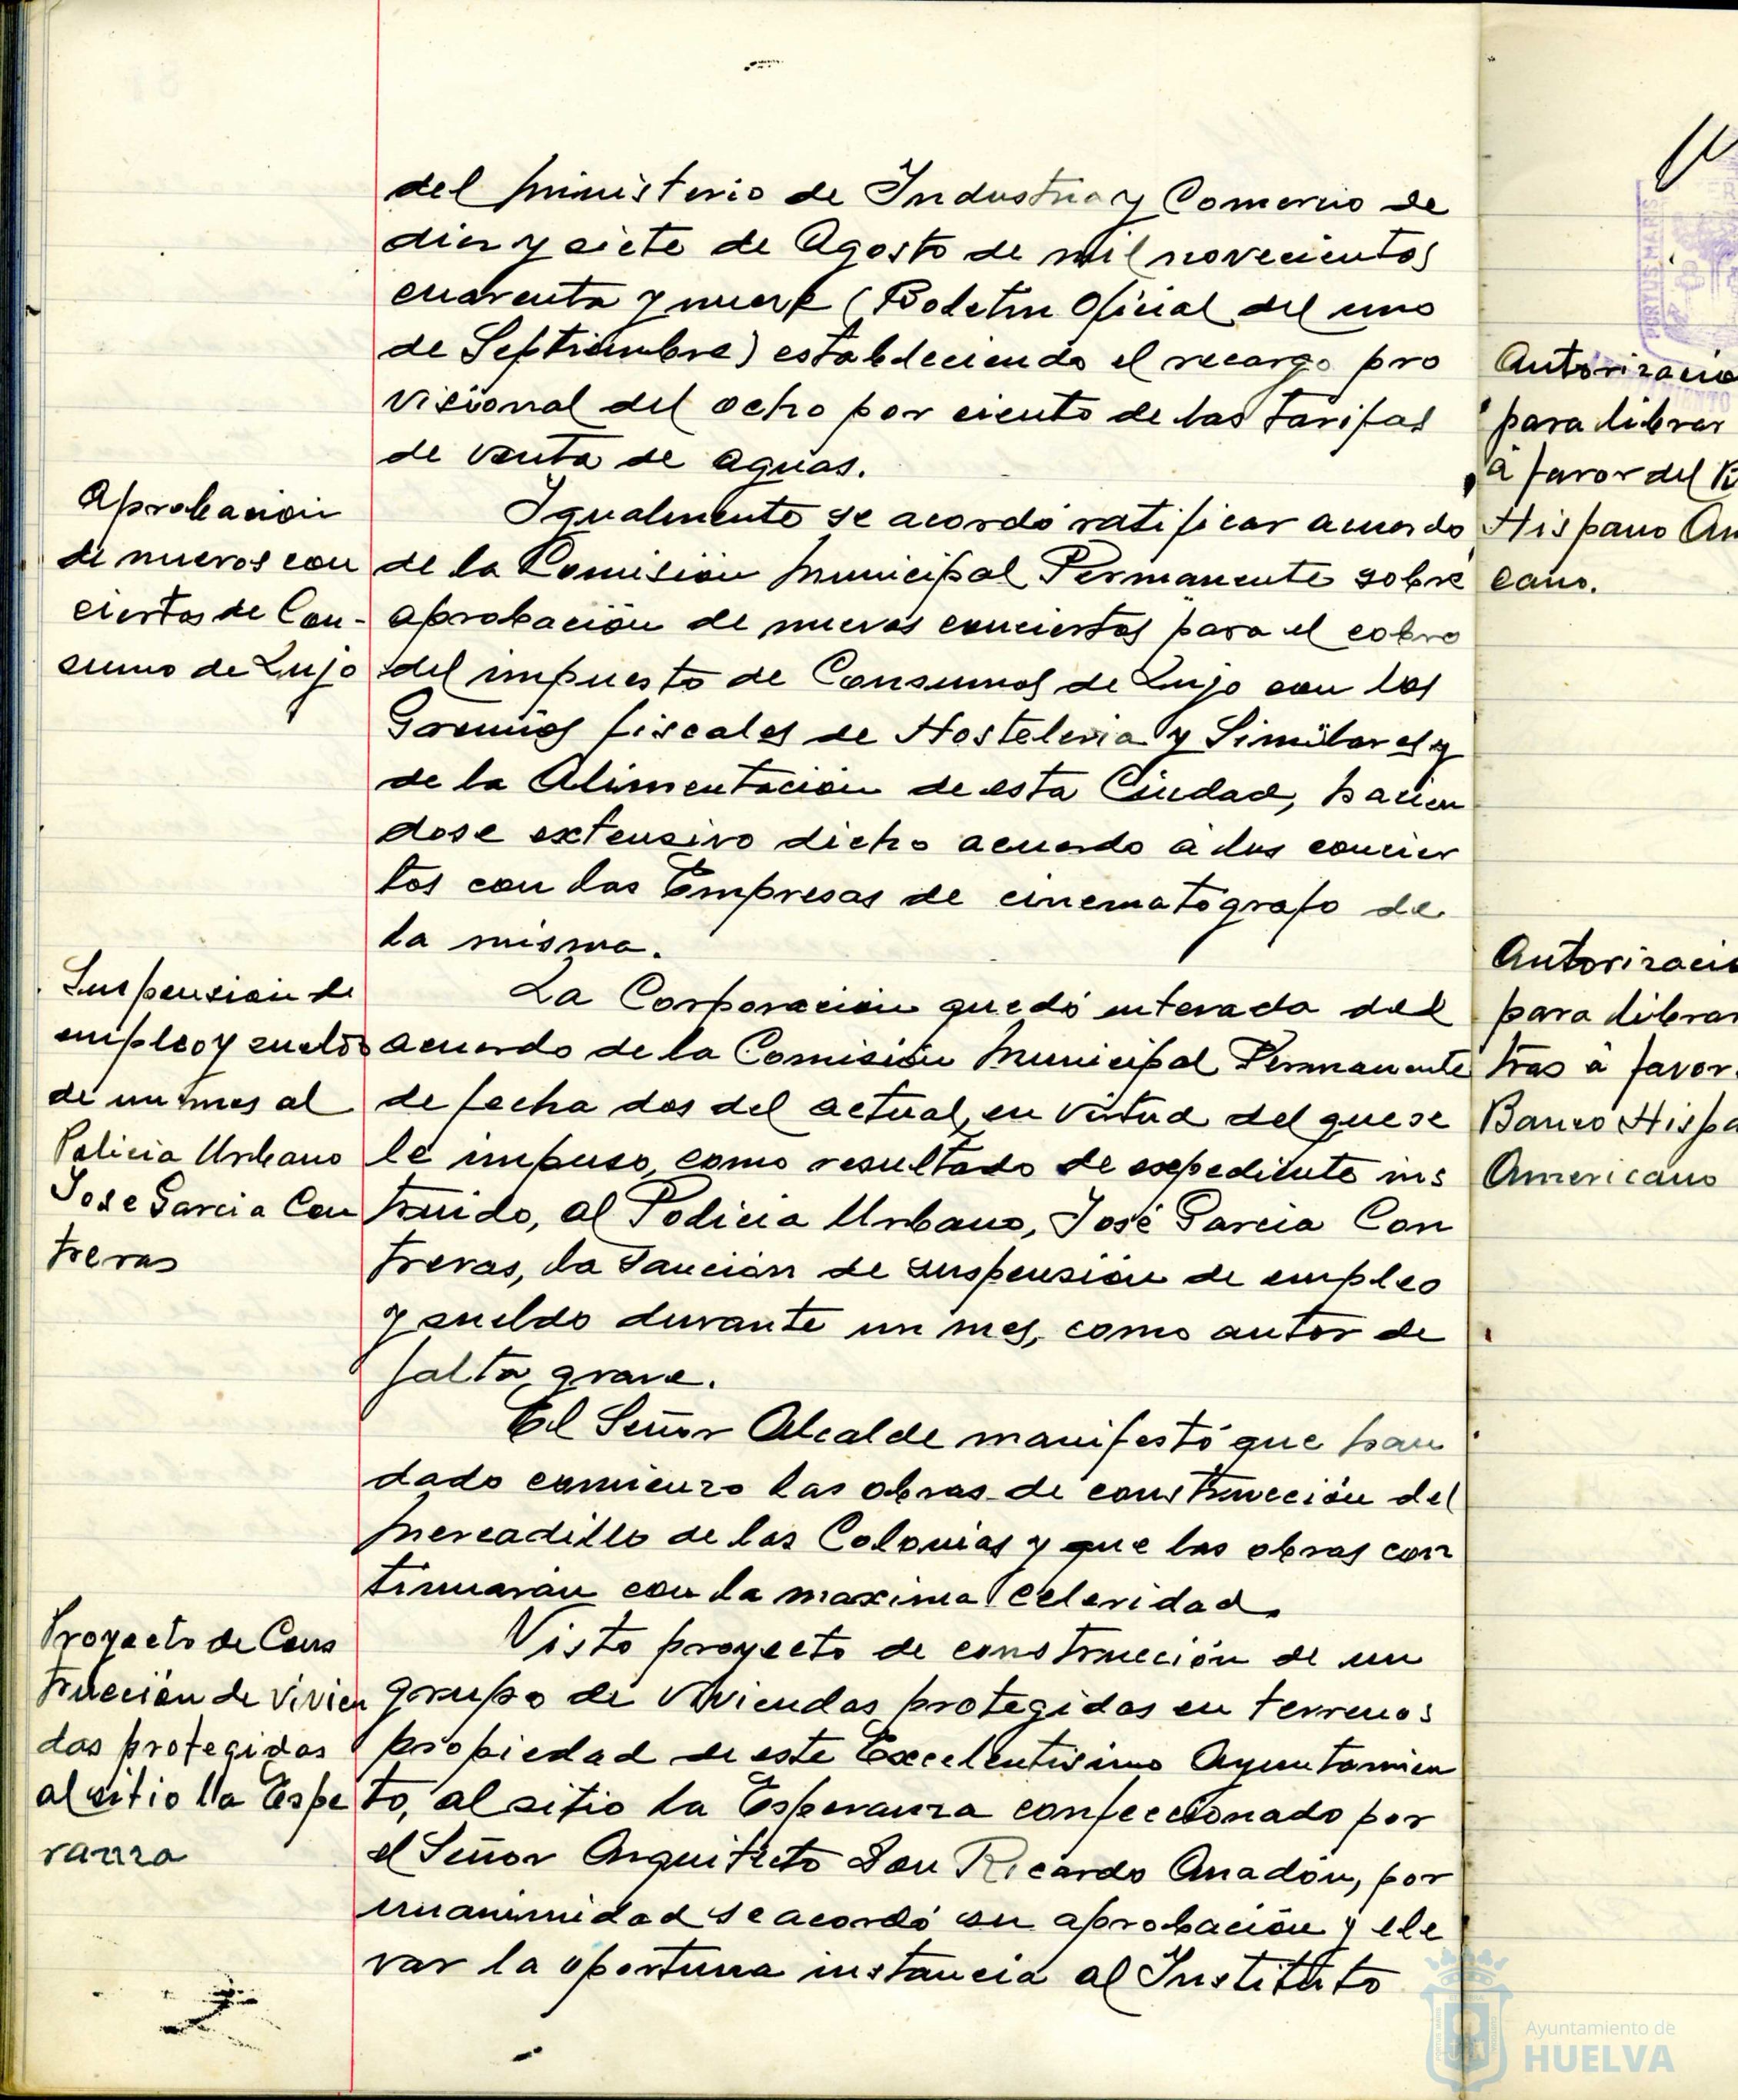 del Ministerio de Industria y Comercio de
diez y siete de Agosto de mil novecientos
cuarenta y nueve (Boletin Oficial del uno
de Septiembre) estableciendo el recargo pro
visional del ocho por ciento de las tarifas
de venta de aguas.
Aprobación
de nuevos con
ciertos de Con-
sumo de Lujo
Igualmente se acordó ratificar acuerdo
de la Comisión Municipal Permanente sobre
aprobación de nuevos conciertos para el cobro
del impuesto de Consumos de Lujo con los
Gremios fiscales de Hosteleria y Similares y
de la Alimentación de esta Ciudad, hacien
dose extensivo dicho acuerdo á los concier
tos con las Empresas de cinematógrafo de
la misma.
Suspensión de
empleo y sueldo
de un mes al
Policia Urbano
Jose Garcia Con
treras
La Corporación quedó enterada del
acuerdo de la Comisión Municipal Permanente
de fecha dos del actual, en virtud del que se
le impuso, como resultado de expediente ins
truido, al Policia Urbano, José Garcia Con
treras, la sanción de suspensión de empleo
y sueldo durante un mes, como autor de
falta grave.
El Señor Alcalde manifestó que han
dado comienzo las obras de construcción del
Mercadillo de las Colonias y que las obras con
tinuarán con la maxima celeridad.
Proyecto de Cons
trucción de Vivien
das protegidas
al sitio la Espe
ranza
Visto proyecto de construcción de un
grupo de viviendas protegidas en terrenos
propiedad de este Excelentisimo Ayuntamien
to, al sitio la Esperanza confeccionado por
el Señor Arquitecto Don Ricardo Anadón, por
unanimidad se acordó su aprobación y ele
var la oportuna instancia al Instituto
Autorizacio
para librar
á favor del B
Hispano Am
cano.
Autorizacio
para librar
tras á favor
Banco Hispa
Americano
Ayuntamiento de
HUELVA